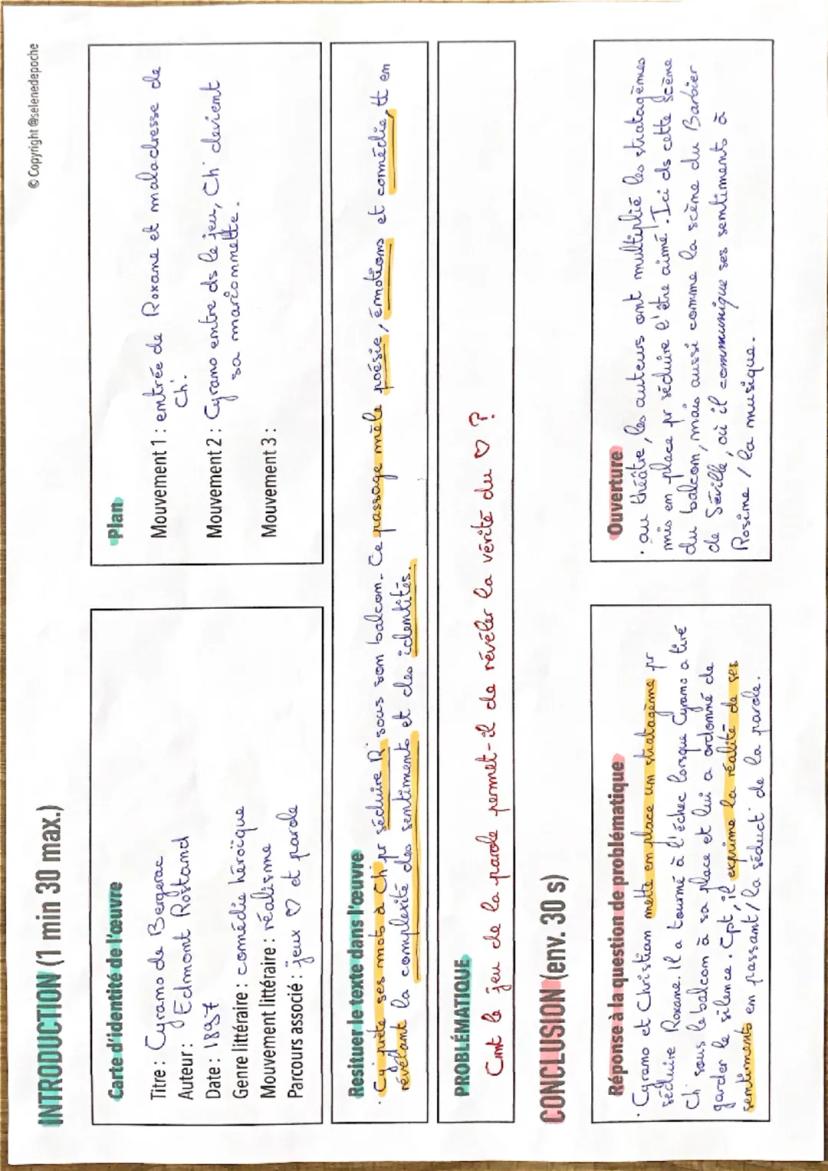 © Copyright @selenedepoche
INTRODUCTION (1 min 30 max.)
Carte d'identité de l'œuvre
Titre : Cyrano de Bergerac
Auteur : Edmont Rostand
Date : 1897
Genre littéraire : comédie héroïque
Mouvement littéraire : réalisme
Parcours associé : jeux ♡ et parole
Plan
Mouvement 1 : entrée de Roxane et maladresse de
Ch.
Mouvement 2 : Cyrano entre ds le jeu, Ch. devient
sa marionnette.
Mouvement 3 :
Resituer le texte dans l'œuvre
· Cy. prête ses mots à Ch pr séduire R. sous son balcon. Ce passage mêle poésie, émotions et comédie, tt en
révélant la complexité des sentiments et des identités.
PROBLÉMATIQUE
Cmt le jeu de la parole permet-il de révéler la vérité du ♡ ?
CONCLUSION (env. 30 s)
Réponse à la question de problématique
· Cyrano et Christian mette en place un stratagème pr
séduire Roxane. Il a tourné à l'échec lorsque Cyrano a tiré
Ch sous le balcon à sa place et lui a ordonné de
garder le silence. Cpt, il exprime la réalité de ses
sentiments en passant/la séduct° de la parole.
Ouverture
· au théâtre, les auteurs ont multiplié les stratagèmes
mis en place pr séduire l'être aimé. Ici ds cette scène
du balcon, mais aussi comme la scène du Barbier
de Séville, où il communique ses sentiments à
Rosine / la musique.